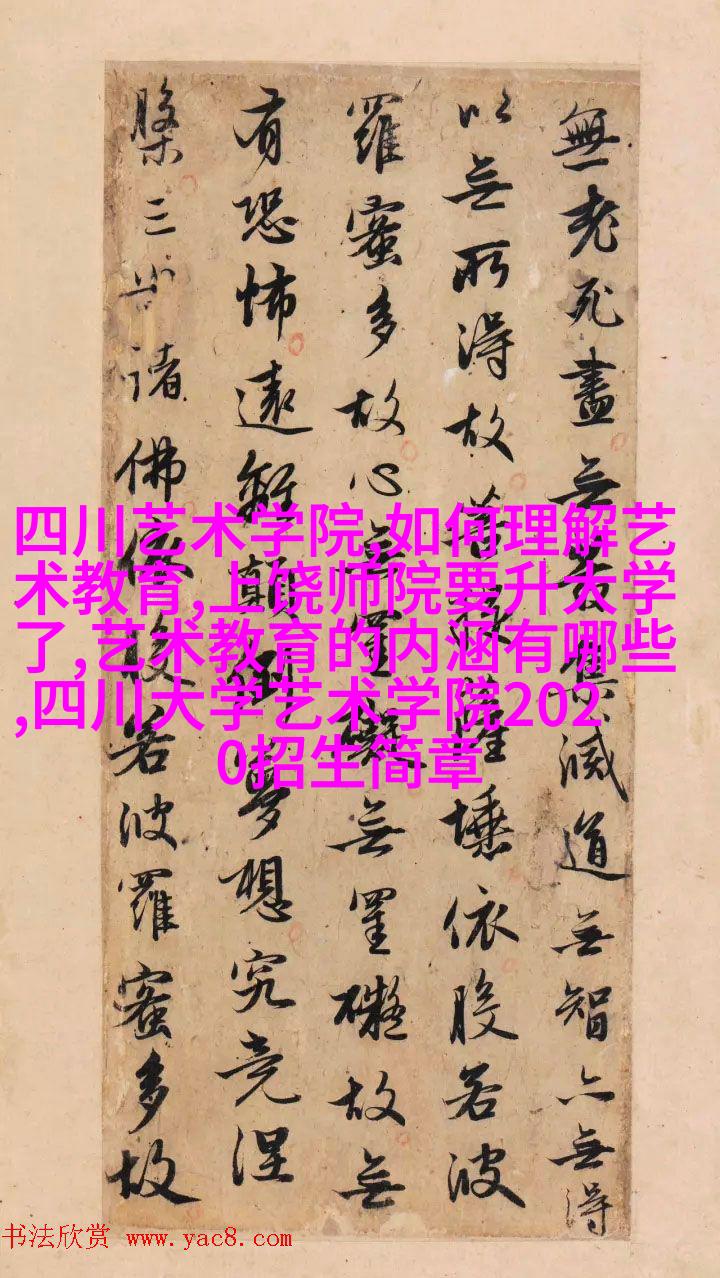 無老死盡无苦集滅道无智亦无得
以无所得故菩提薩埵依般若波
羅蜜多故心无罣礙无罣礙故无
有恐怖遠離顛倒夢想究竟涅
槃三世諸佛依般若波羅蜜多故
四川艺术学院,如何理解艺
术教育,上饶师院要升大学
了,艺术教育的内涵有哪些
,四川大学艺术学院202
0招生简章
书法欣赏 www.yac8.com